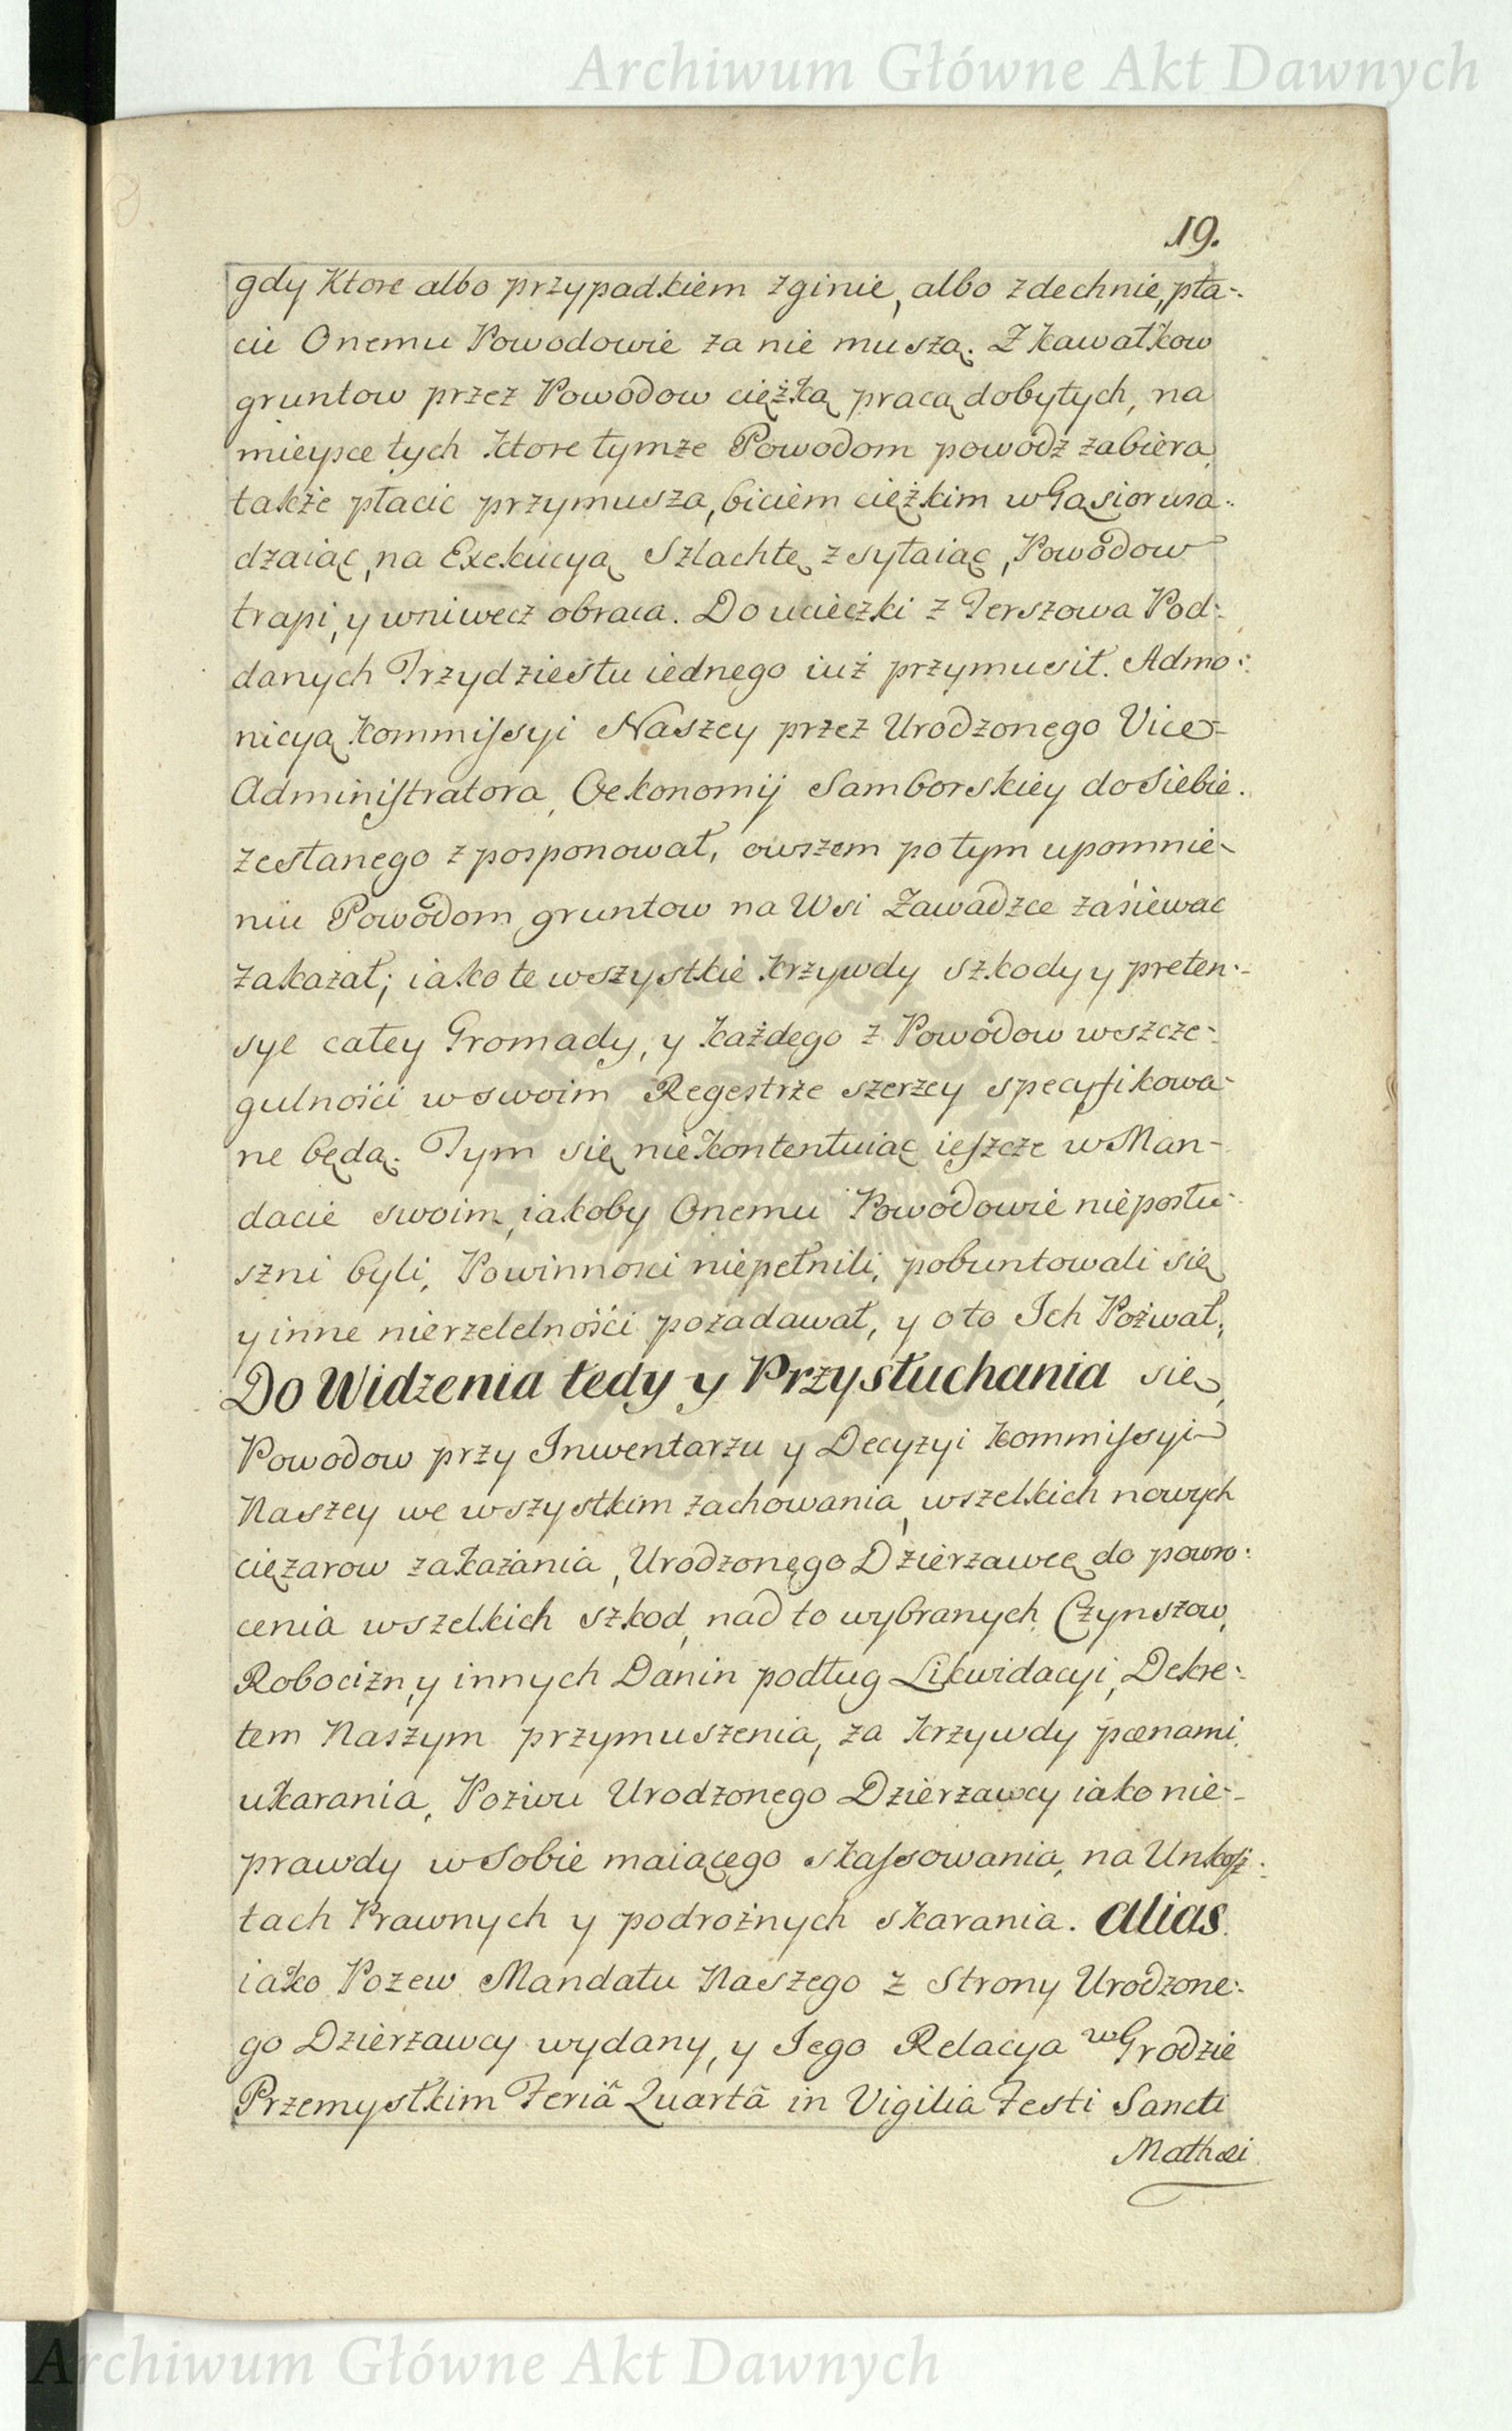 Archiwum Główne Akt Dawnych
19.
gdy Ktore albo przypadkiem zginie, albo zdechnie, pła-
cić Onemu Powodowie za nie muszą. Z Kawałkow
gruntow przez Powodow ciężką pracą dobytych, na
mieysce tych Ktore tymże Powodom powodź zabiera,
także płacić przymusza, biciem ciężkim w Gąsior wsa-
dzaiąc, na Exekucyą Szlachtę zsyłaiąc, Powodow
trapi, y wniwecz obraca. Do ucieczki z Terszowa Pod-
danych Trzydziestu iednego iuż przymusił. Admo-
nicyą Kommissyi Naszey przez Urodzonego Vice-
Administratora Oekonomij Samborskiey do Siebie
zesłanego zposponował, owszem po tym upomnie-
niu Powodom gruntow na Wsi Zawadzce zasiewac
zakazał; iako te wszystkie krzywdy szkody y preten-
sye całey Gromady, y każdego z Powodow wszcze-
gulności w swoim Regestrze szerzey specyfikowa-
ne będą. Tym się nie kontentuiąc ieszcze w Man-
dacie swoim, iakoby Onemu Powodowie nieposłu-
szni byli, Powinności niepełnili, pobuntowali się
y inne nierzetelności pozadawał, y o to Ich Pozwał,
Do Widzenia tedy y Przysłuchania się,
Powodow przy Inwentarzu y Decyzyi Kommissyi
Naszey we wszystkim zachowania, wszelkich nowych
ciężarow zakazania, Urodzonego Dzierzawcę do powro-
cenia wszelkich szkod, nad to wybranych Czynszow,
Robocizn, y innych Danin podług Likwidacyi, Dekre-
tem Naszym przymuszenia, za krzywdy pœnami
ukarania, Pozwu Urodzonego Dzierzawcy iako nie-
prawdy w Sobie maiącego skassowania, na Unkosz-
tach Prawnych y podrożnych skarania. alias
iako Pozew Mandatu Naszego z Strony Urodzone-
go Dzierzawcy wydany, y Jego Relacya w Grodzie
Przemyskim Feriâ Quartâ in Vigilia Festi Sancti
Mathæi
Archiwum Główne Akt Dawnych